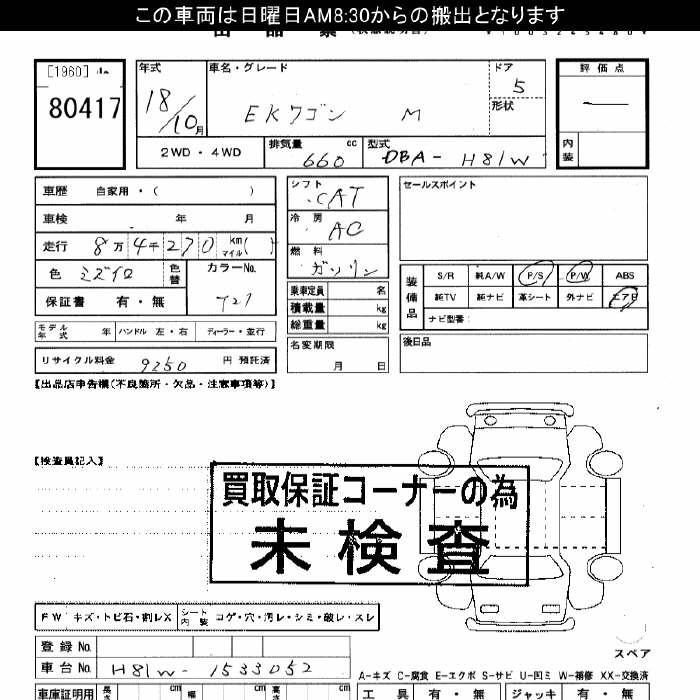 この車両は日曜日AM8:30からの搬出となります
[1960]
80417
年式
18/10月
車名・グレード
EKワゴン M
ドア
5
形状
評価点
内装
2WD・4WD
排気量 cc
660
型式
DBA-H81W
車歴 自家用・( )
車検 年 月
走行 8万4千270km マイル( )
色 ミズイロ
色替
カラーNo.
T27
保証書 有・無
モデル年式 年
ハンドル 左・右
ディーラー・並行
リサイクル料金 9250 円 預託済
シフト
CAT
冷房
AC
燃料
ガソリン
乗車定員 名
積載量 kg
総重量 kg
名変期限
月 日
セールスポイント
装備品
S/R 純A/W P/S P/W ABS
純TV 純ナビ 革シート 外ナビ エアB
ナビ型番:
後日品
【出品店申告欄(不良箇所・欠品・注意事項等)】
【検査員記入】
買取保証コーナーの為
未検査
FW キズ・トビ石・割レX
シート内装 コゲ・穴・汚レ・シミ・破レ・スレ
登録No.
車台No. H81W-1533052
スペア
A-キズ C-腐食 E-エクボ S-サビ U-凹ミ W-補修 XX-交換済
車庫証明用 長さ cm 幅 cm 高さ cm
工具 有・無 ジャッキ 有・無